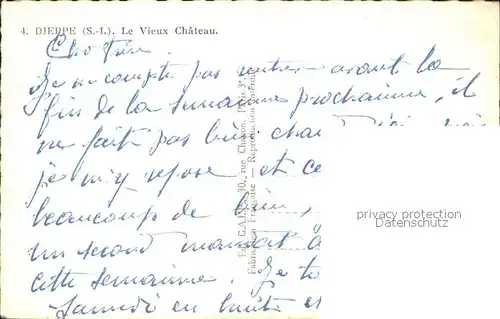 4. DIEPPE (S.-I.). Le Vieux Château.
Je ne compte pas rentrer avant la
fin de la semaine prochaine, il
ne fait pas bien
je m'y repose et ce
beaucoup de bien,
un second mandat à
cette semaine. Je te
Samedi en
Edit. GABY 30, rue
Fabrication Française — Reproduction
privacy protection
Datenschutz